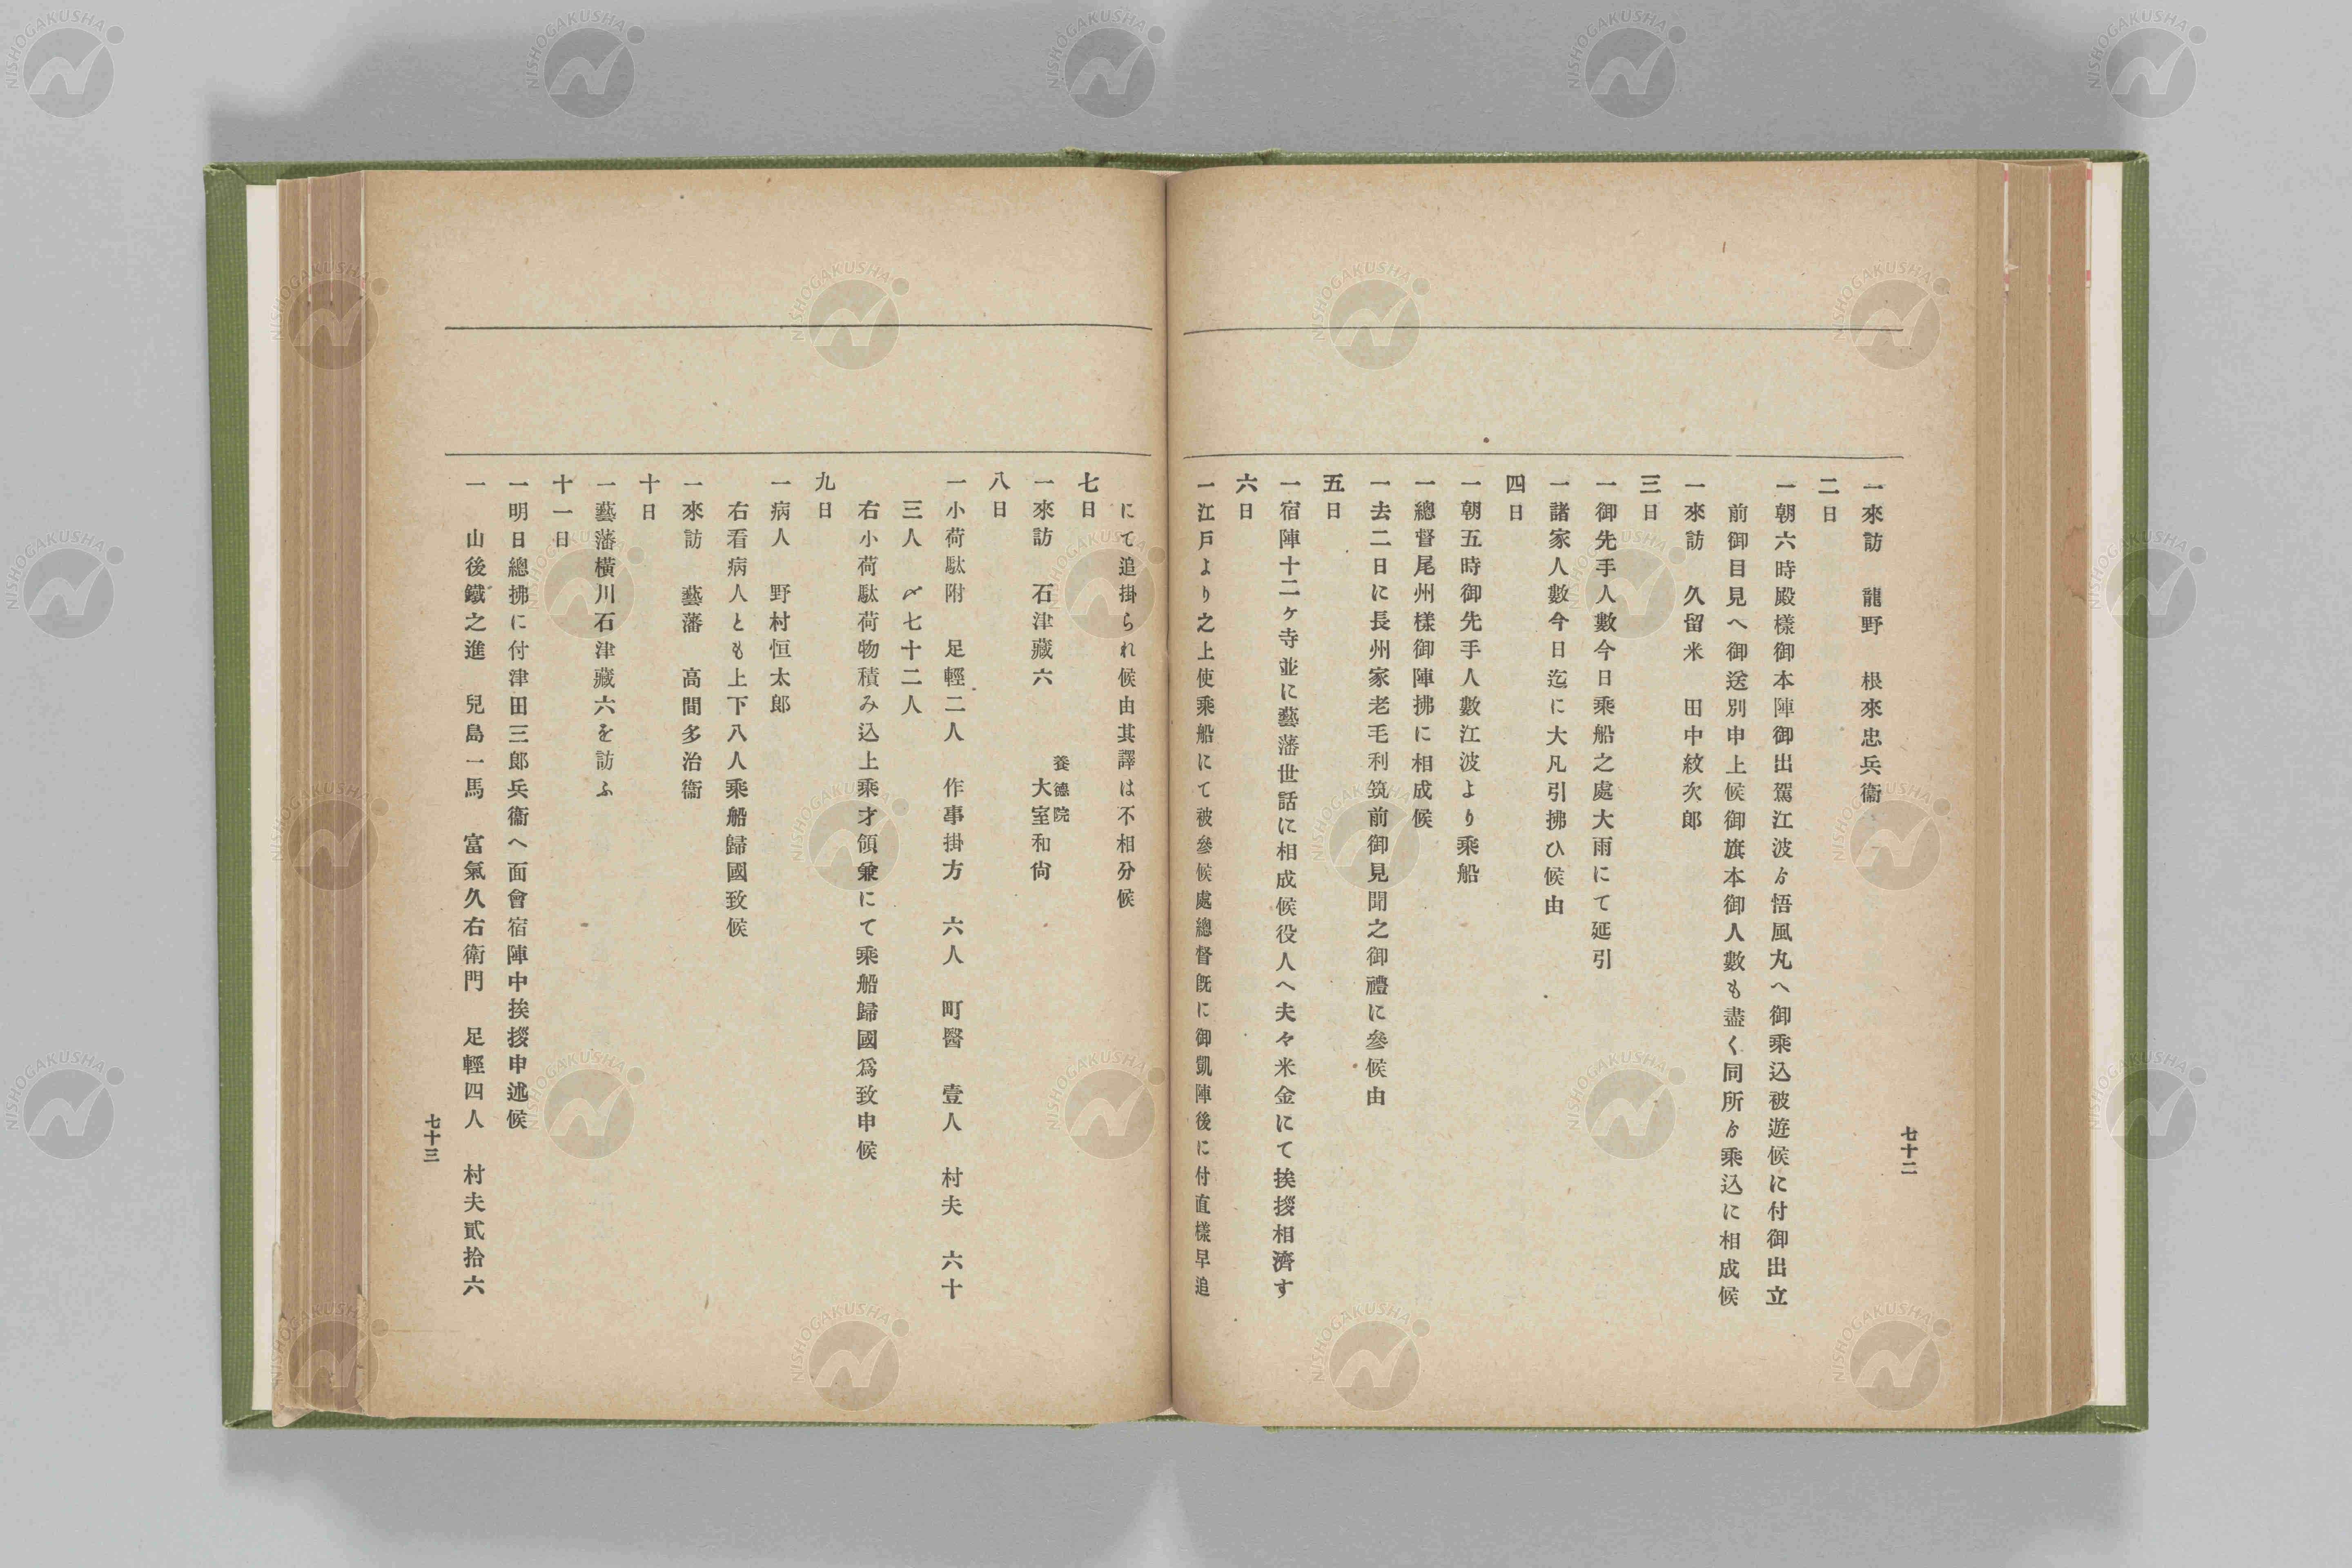 七十二
一來訪　龍野　根來忠兵衞
二日
一朝六時殿樣御本陣御出駕江波ゟ悟風丸へ御乘込被遊候に付御出立
前御目見へ御送別申上候御旗本御人數も盡く同所ゟ乘込に相成候
一來訪　久留米　田中紋次郎
三日
一御先手人數今日乘船之處大雨にて延引
一諸家人數今日迄に大凡引拂ひ候由
四日
一朝五時御先手人數江波より乘船
一總督尾州樣御陣拂に相成候
一去二日に長州家老毛利筑前御見聞之御禮に參候由
五日
一宿陣十二ヶ寺並に藝藩世話に相成候役人へ夫々米金にて挨拶相濟す
六日
一江戸より之上使乘船にて被參候處總督既に御凱陣後に付直樣早追
にて追掛られ候由其譯は不相分候
七日
一來訪　石津藏六　養德院　大室和尙
八日
一小荷駄附　足輕二人　作事掛方　六人　町醫　壹人　村夫　六十
三人　〆七十二人
右小荷駄荷物積み込上乘才領兼にて乘船歸國爲致申候
九日
一病人　野村恒太郎
右看病人とも上下八人乘船歸國致候
一來訪　藝藩　高間多治衞
十日
一藝藩橫川石津藏六を訪ふ
十一日
一明日總拂に付津田三郎兵衞へ面會宿陣中挨拶申述候
一　山後鐵之進　兒島一馬　富氣久右衞門　足輕四人　村夫貳拾六
七十三
NISHOGAKUSHA